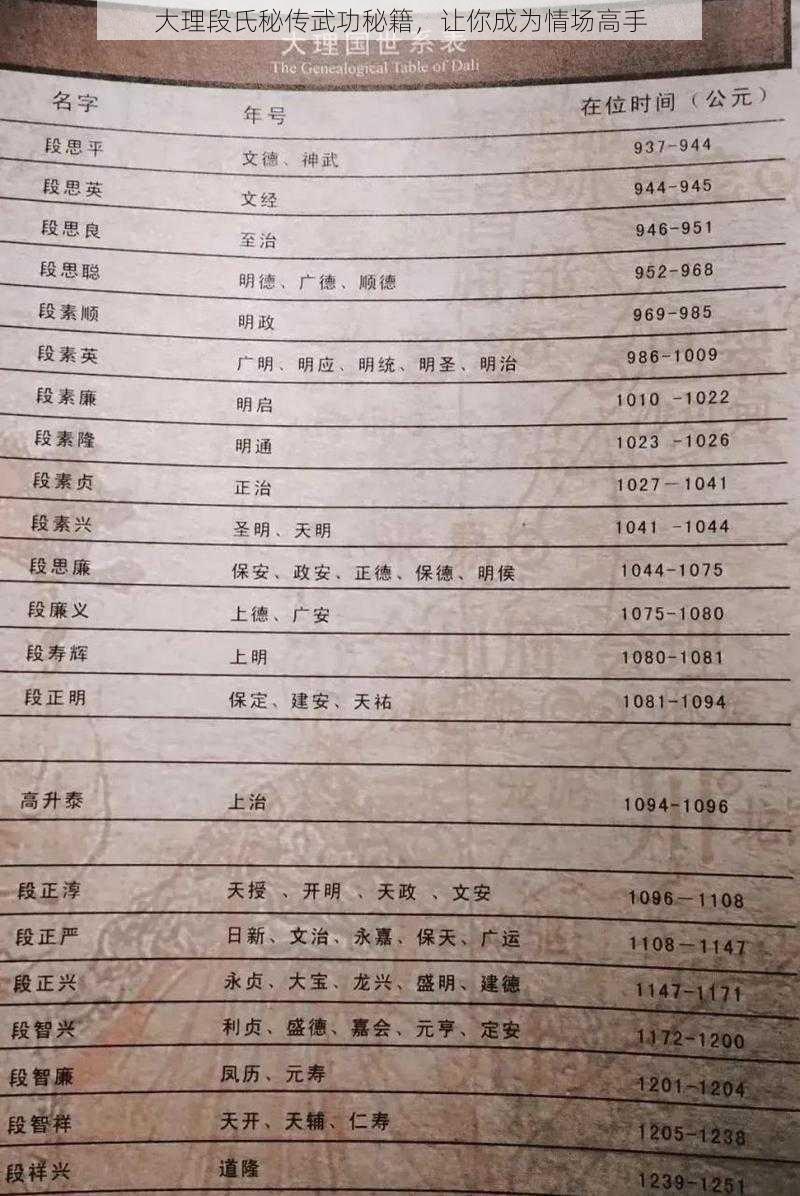 大理段氏秘传武功秘籍，让你成为情场高手
大理国世系表
The Genealogical Table of Dali
名字 年号 在位时间（公元）
段思平 文德、神武 937-944
段思英 文经 944-945
段思良 至治 946-951
段思聪 明德、广德、顺德 952-968
段素顺 明政 969-985
段素英 广明、明应、明统、明圣、明治 986-1009
段素廉 明启 1010 -1022
段素隆 明通 1023 -1026
段素贞 正治 1027－1041
段素兴 圣明、天明 1041 -1044
段思廉 保安、政安、正德、保德、明侯 1044-1075
段廉义 上德、广安 1075-1080
段寿辉 上明 1080-1081
段正明 保定、建安、天祐 1081-1094
高升泰 上治 1094-1096
段正淳 天授 、开明 、天政 、文安 1096－1108
段正严 日新、文治、永嘉、保天、广运 1108－1147
段正兴 永贞、大宝、龙兴、盛明、建德 1147-1171
段智兴 利贞、盛德、嘉会、元亨、定安 1172-1200
段智廉 凤历、元寿 1201-1204
段智祥 天开、天辅、仁寿 1205-1238
段祥兴 道隆 1239-1251